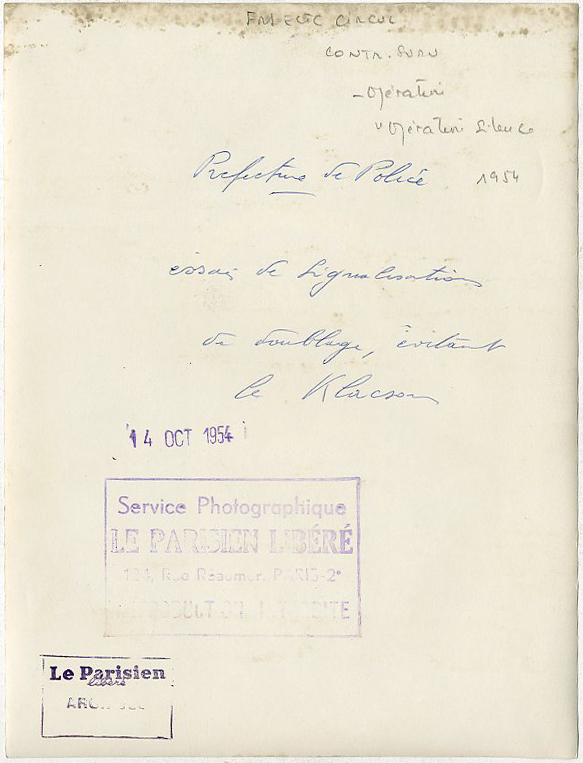 CIRCUL
- Opération
" Opération Silence
Préfecture de Police 1954
essais de signalisations
de doublage, évitant
le Klacson
14 OCT 1954
Service Photographique
LE PARISIEN LIBÉRÉ
124, Rue Réaumur, PARIS-2°
Le Parisien
libéré